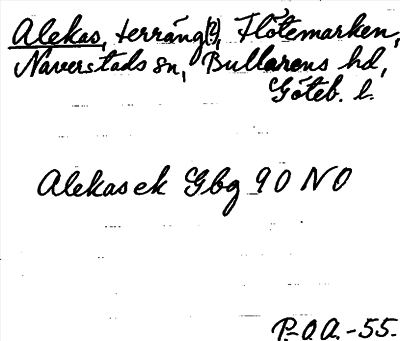 Alekas, terräng(?), Flötemarken,
Naverstads sn, Bullarens hd,
Göteb. l.
Alekasek Gbg 90 NO
P.-O.A. -55.